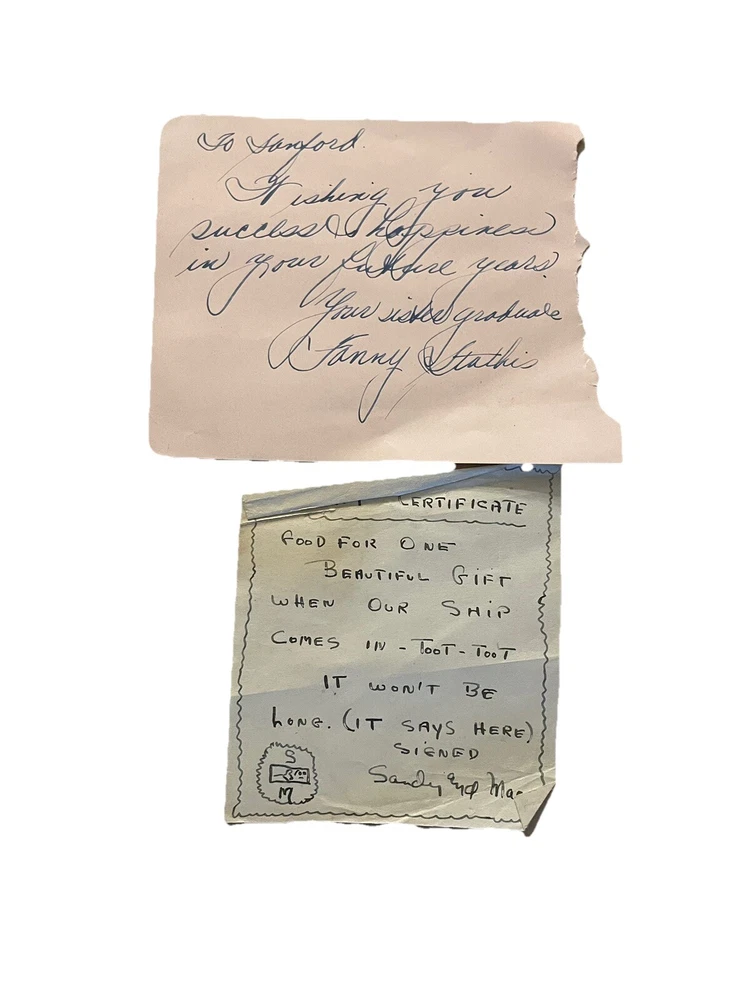 To Sanford.
Wishing you
success & happiness
in your future years.
Your sister graduate
Fanny Stathis
CERTIFICATE
GOOD FOR ONE
BEAUTIFUL GIFT
WHEN OUR SHIP
COMES IN - TOOT - TOOT
IT WON'T BE
LONG. (IT SAYS HERE)
SIGNED
Sandy and
S
M